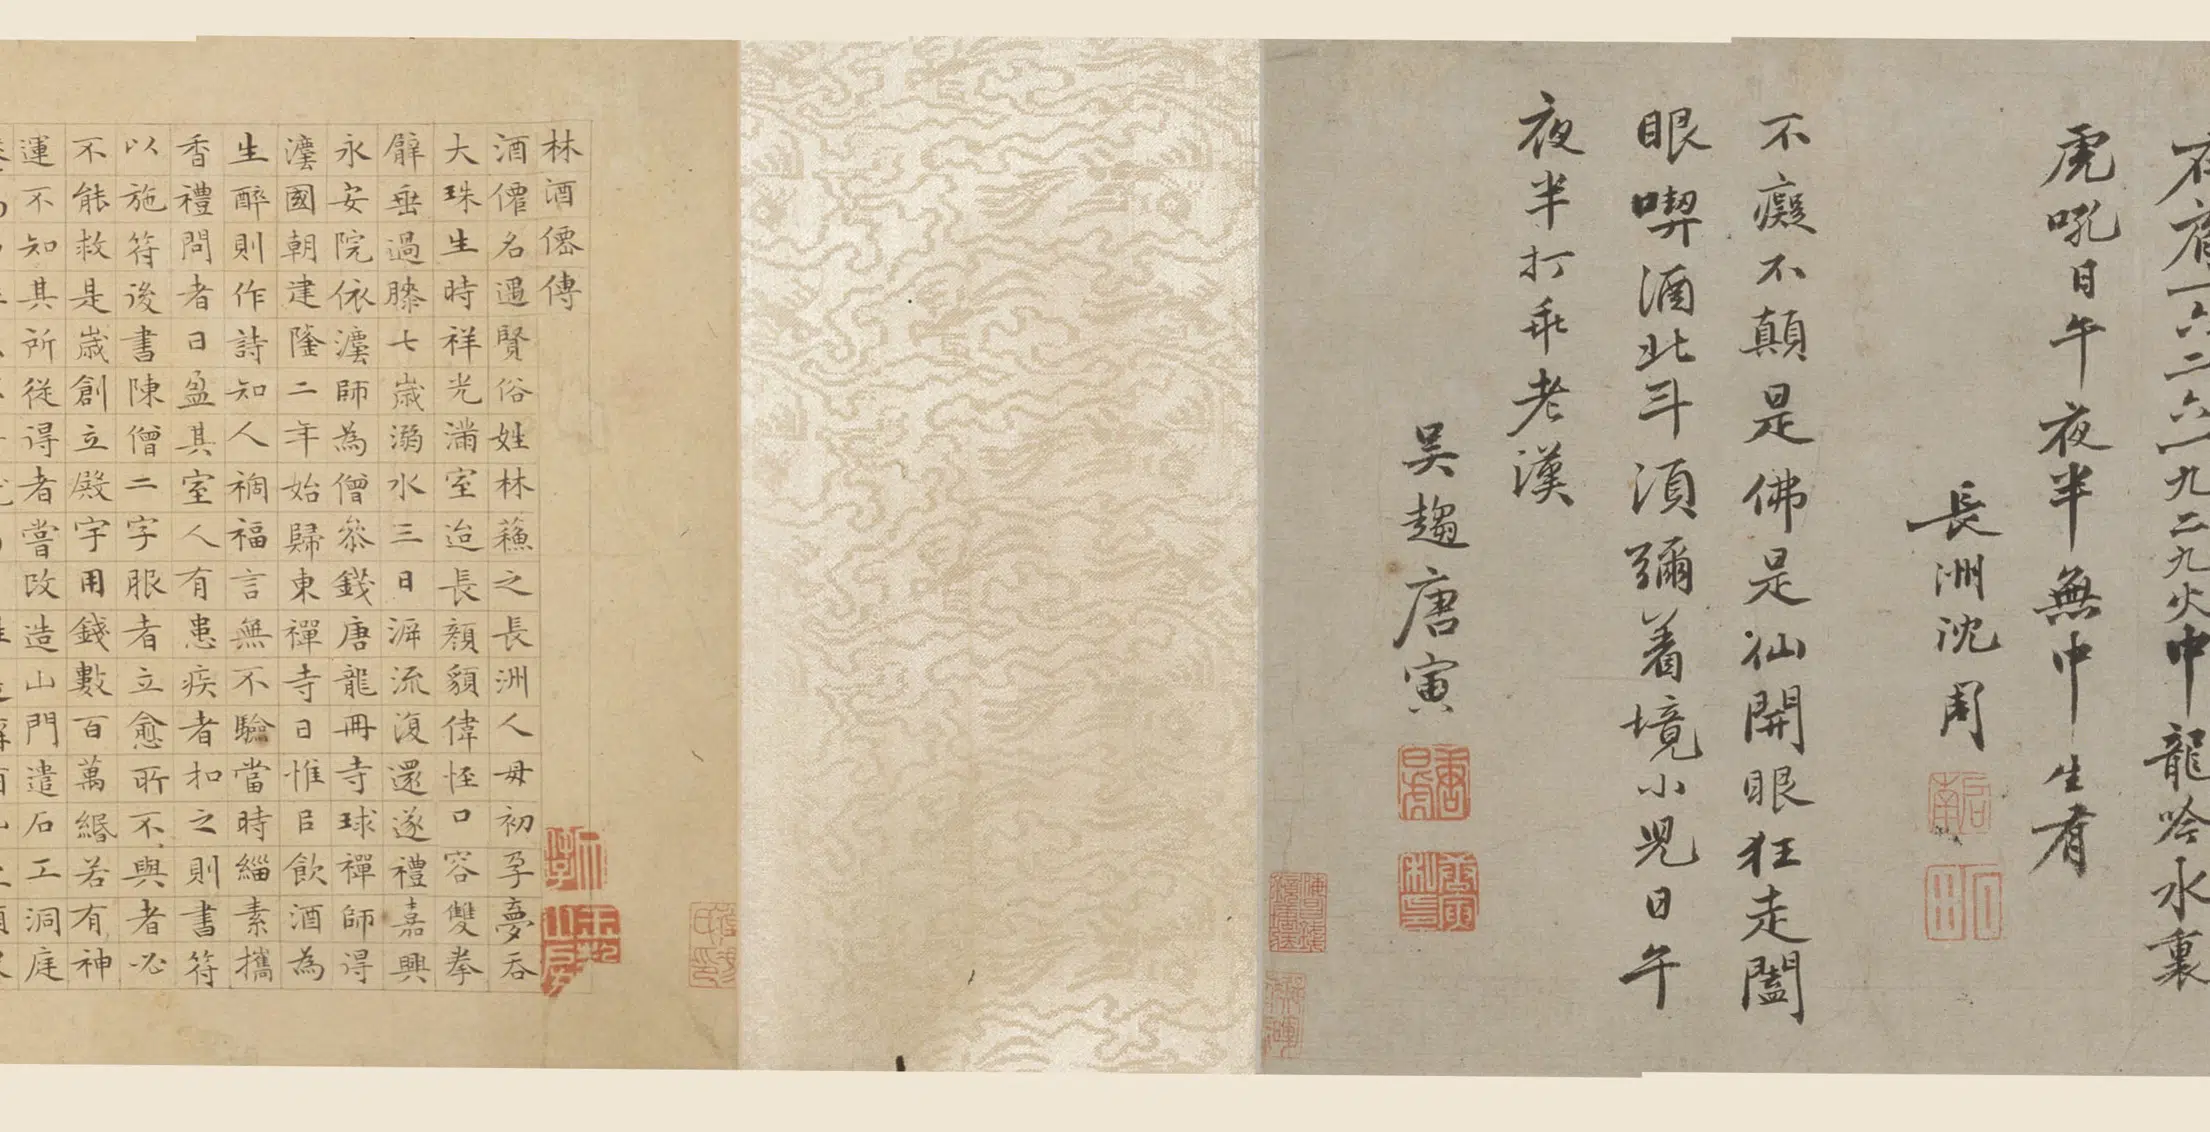 肩一六二六一九二九火中龍吟水裏
虎吼日午夜半無中生有
長洲沈周
不癡不顛是佛是仙開眼狂走闔
眼喫酒北斗湏彌著境小兒日午
夜半打乖老漢
吳趨唐寅
林酒僊傳
酒僊名遇賢俗姓林蘓之長洲人毋初孕夢吞
大珠生時祥光滿室迨長顔貌偉恠口容雙拳
臂垂過膝七歳溺水三日泝流復還遂禮嘉興
永安院依灋師為僧叅錢唐龍冊寺球禪師得
灋國朝建隆二年始歸東禪寺日惟㠯飲酒為
生醉則作詩知人禍福言無不驗當時緇素攜
香禮問者日盈其室人有患疾者扣之則書符
以施符後書陳僧二字服者立愈所不與者必
不能救是歳創立殿宇用錢數百萬緡若有神
運不知其所從得者嘗改造山門遣石工洞庭